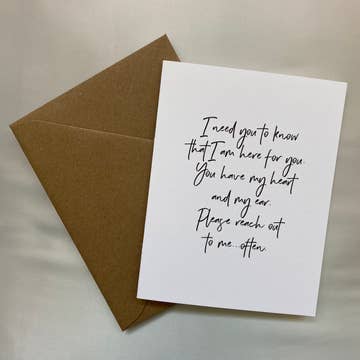 I need you to know
that I am here for you.
You have my heart
and my ear.
Please reach out
to me...often.